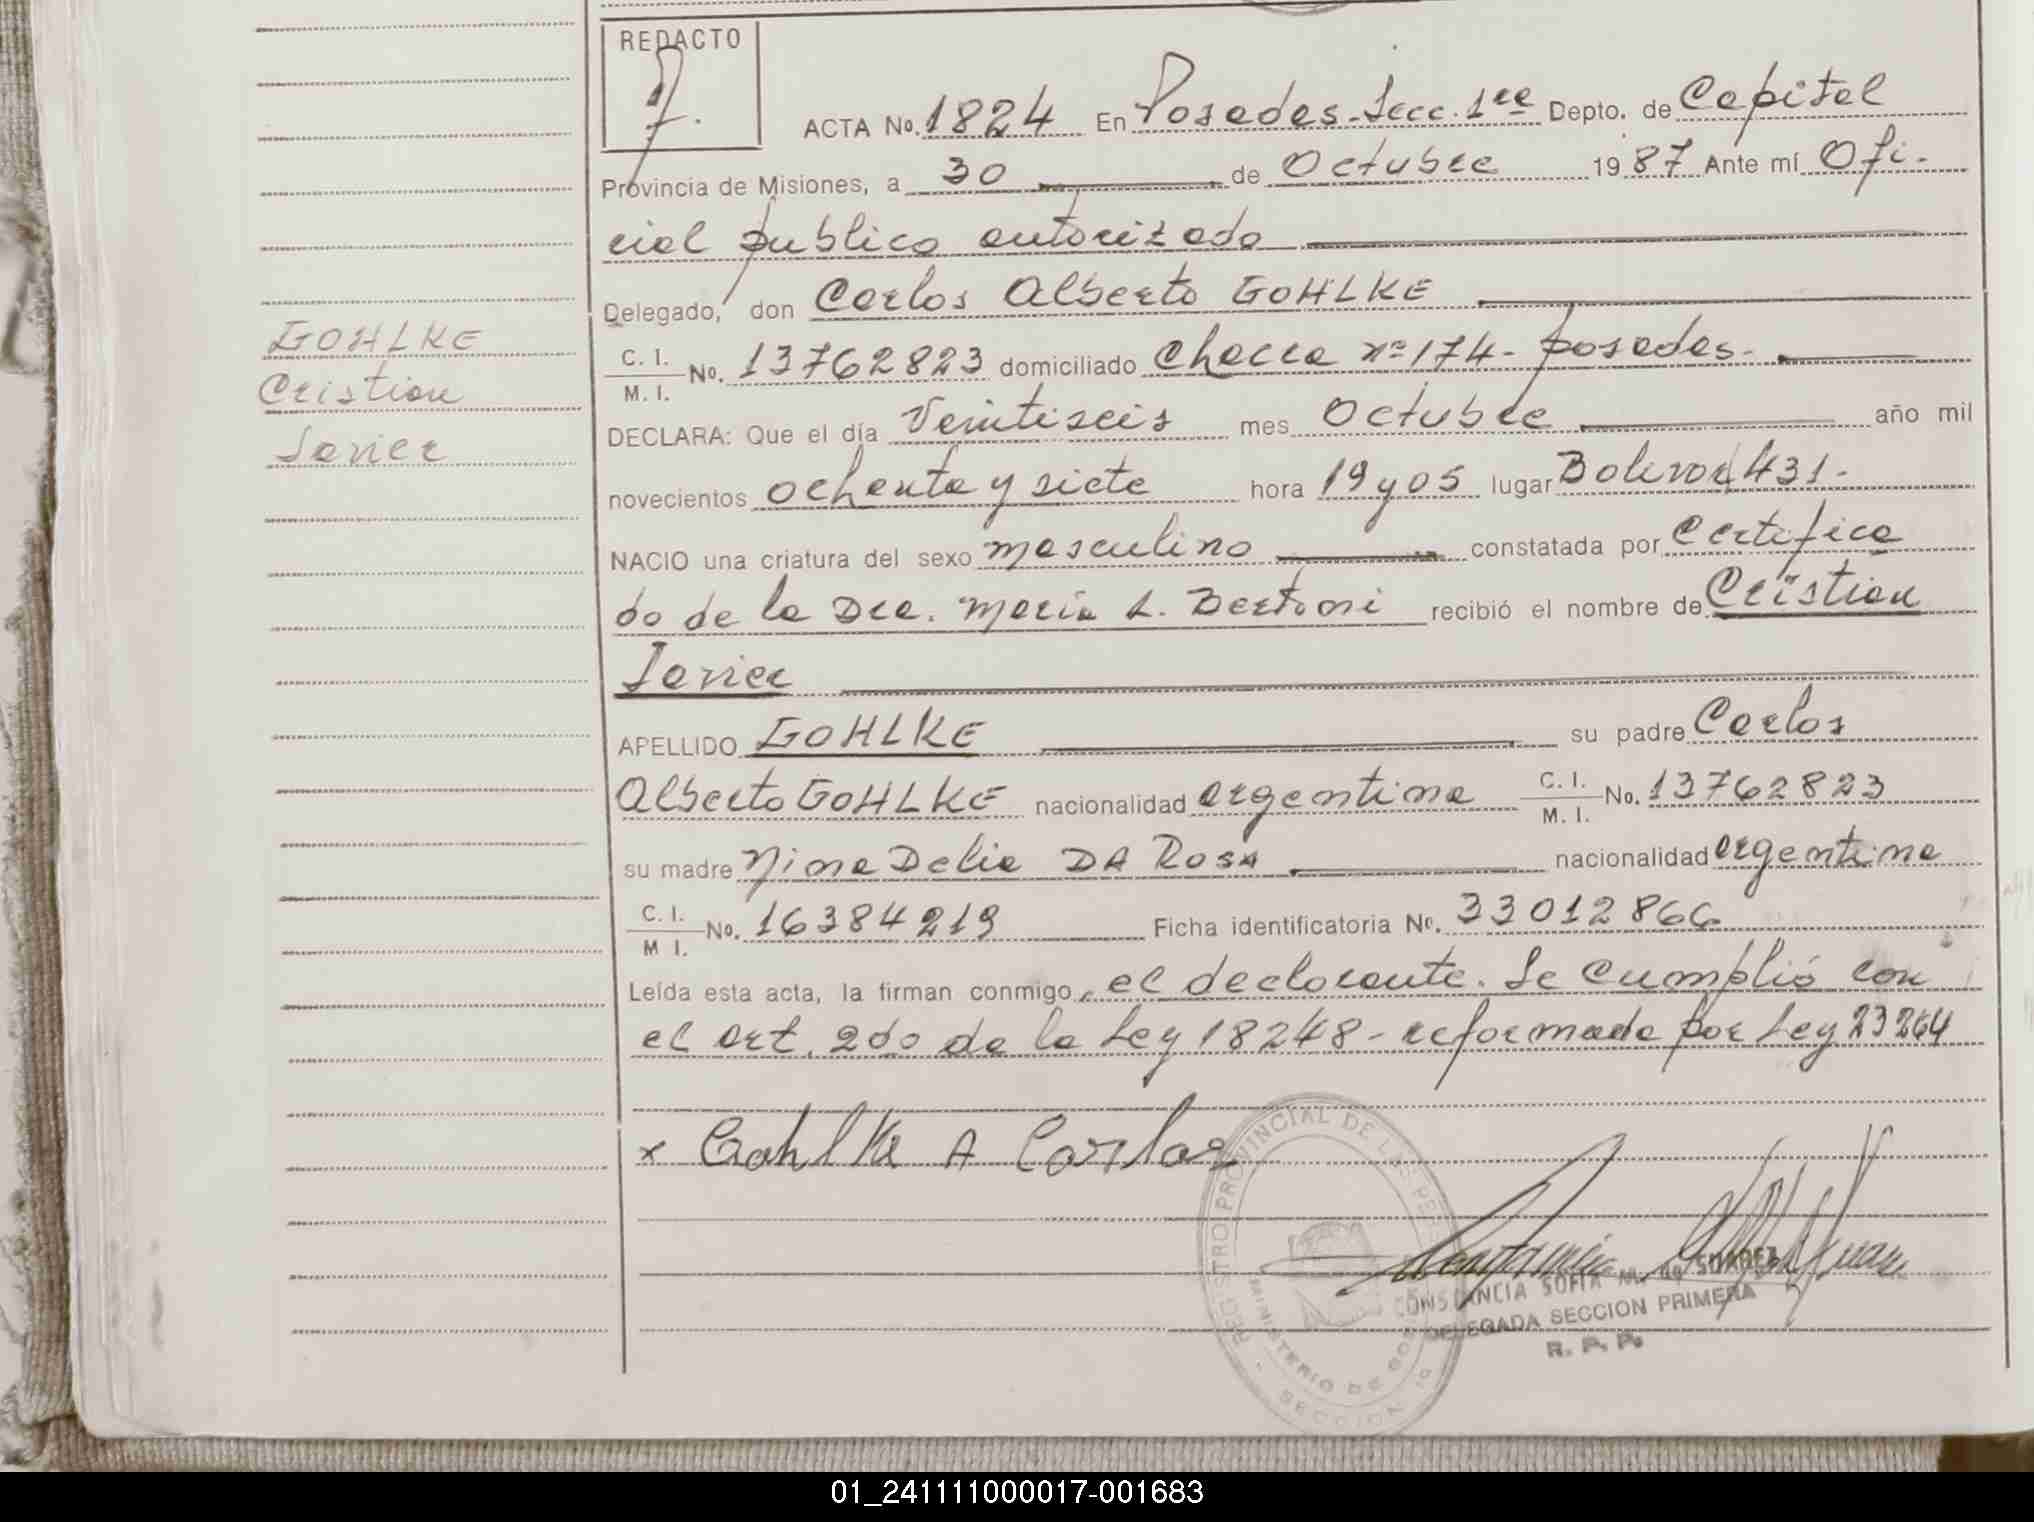 REDACTO
ACTA No. 1824 En Posadas - Secc. 1ra Depto. de Capital
Provincia de Misiones, a 30 de Octubre 1987 Ante mí Ofi-
cial público autorizado
Delegado, don Carlos Alberto GOHLKE
C. I.
M. I. No. 13762823 domiciliado Chacra nº 174 - Posadas -
DECLARA: Que el día Veintiseis mes Octubre año mil
novecientos ochenta y siete hora 19 y 05 lugar Bolivar 431 -
NACIO una criatura del sexo masculino constatada por Certifica
do de la Dra. María L. Bertoni recibió el nombre de Cristian
Javier
APELLIDO GOHLKE su padre Carlos
Alberto GOHLKE nacionalidad argentina C. I. M. I. No. 13762823
su madre Nima Delia DA ROSA nacionalidad argentina
C. I.
M I. No. 16384219 Ficha identificatoria No. 33012866
Leída esta acta, la firman conmigo, el declarante. Se cumplió con
el art. 2do de la Ley 18248 - reformada por Ley 23264
GOHLKE
Cristian
Javier
x Gohlke A Carlos
REGISTRO PROVINCIAL DE LAS PER
MINISTERIO DE GOBI
SECCION 1a
CONSTANCIA SOFIA M. de SUAREZ
DELEGADA SECCION PRIMERA
R. P. P.
01_241111000017-001683